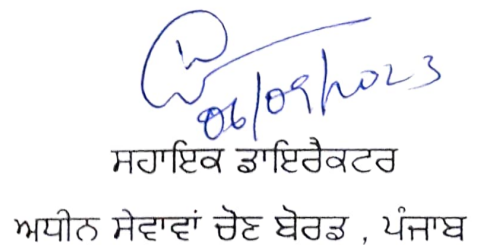 06/09/2023
ਸਹਾਇਕ ਡਾਇਰੈਕਟਰ
ਅਧੀਨ ਸੇਵਾਵਾਂ ਚੋਣ ਬੋਰਡ , ਪੰਜਾਬ